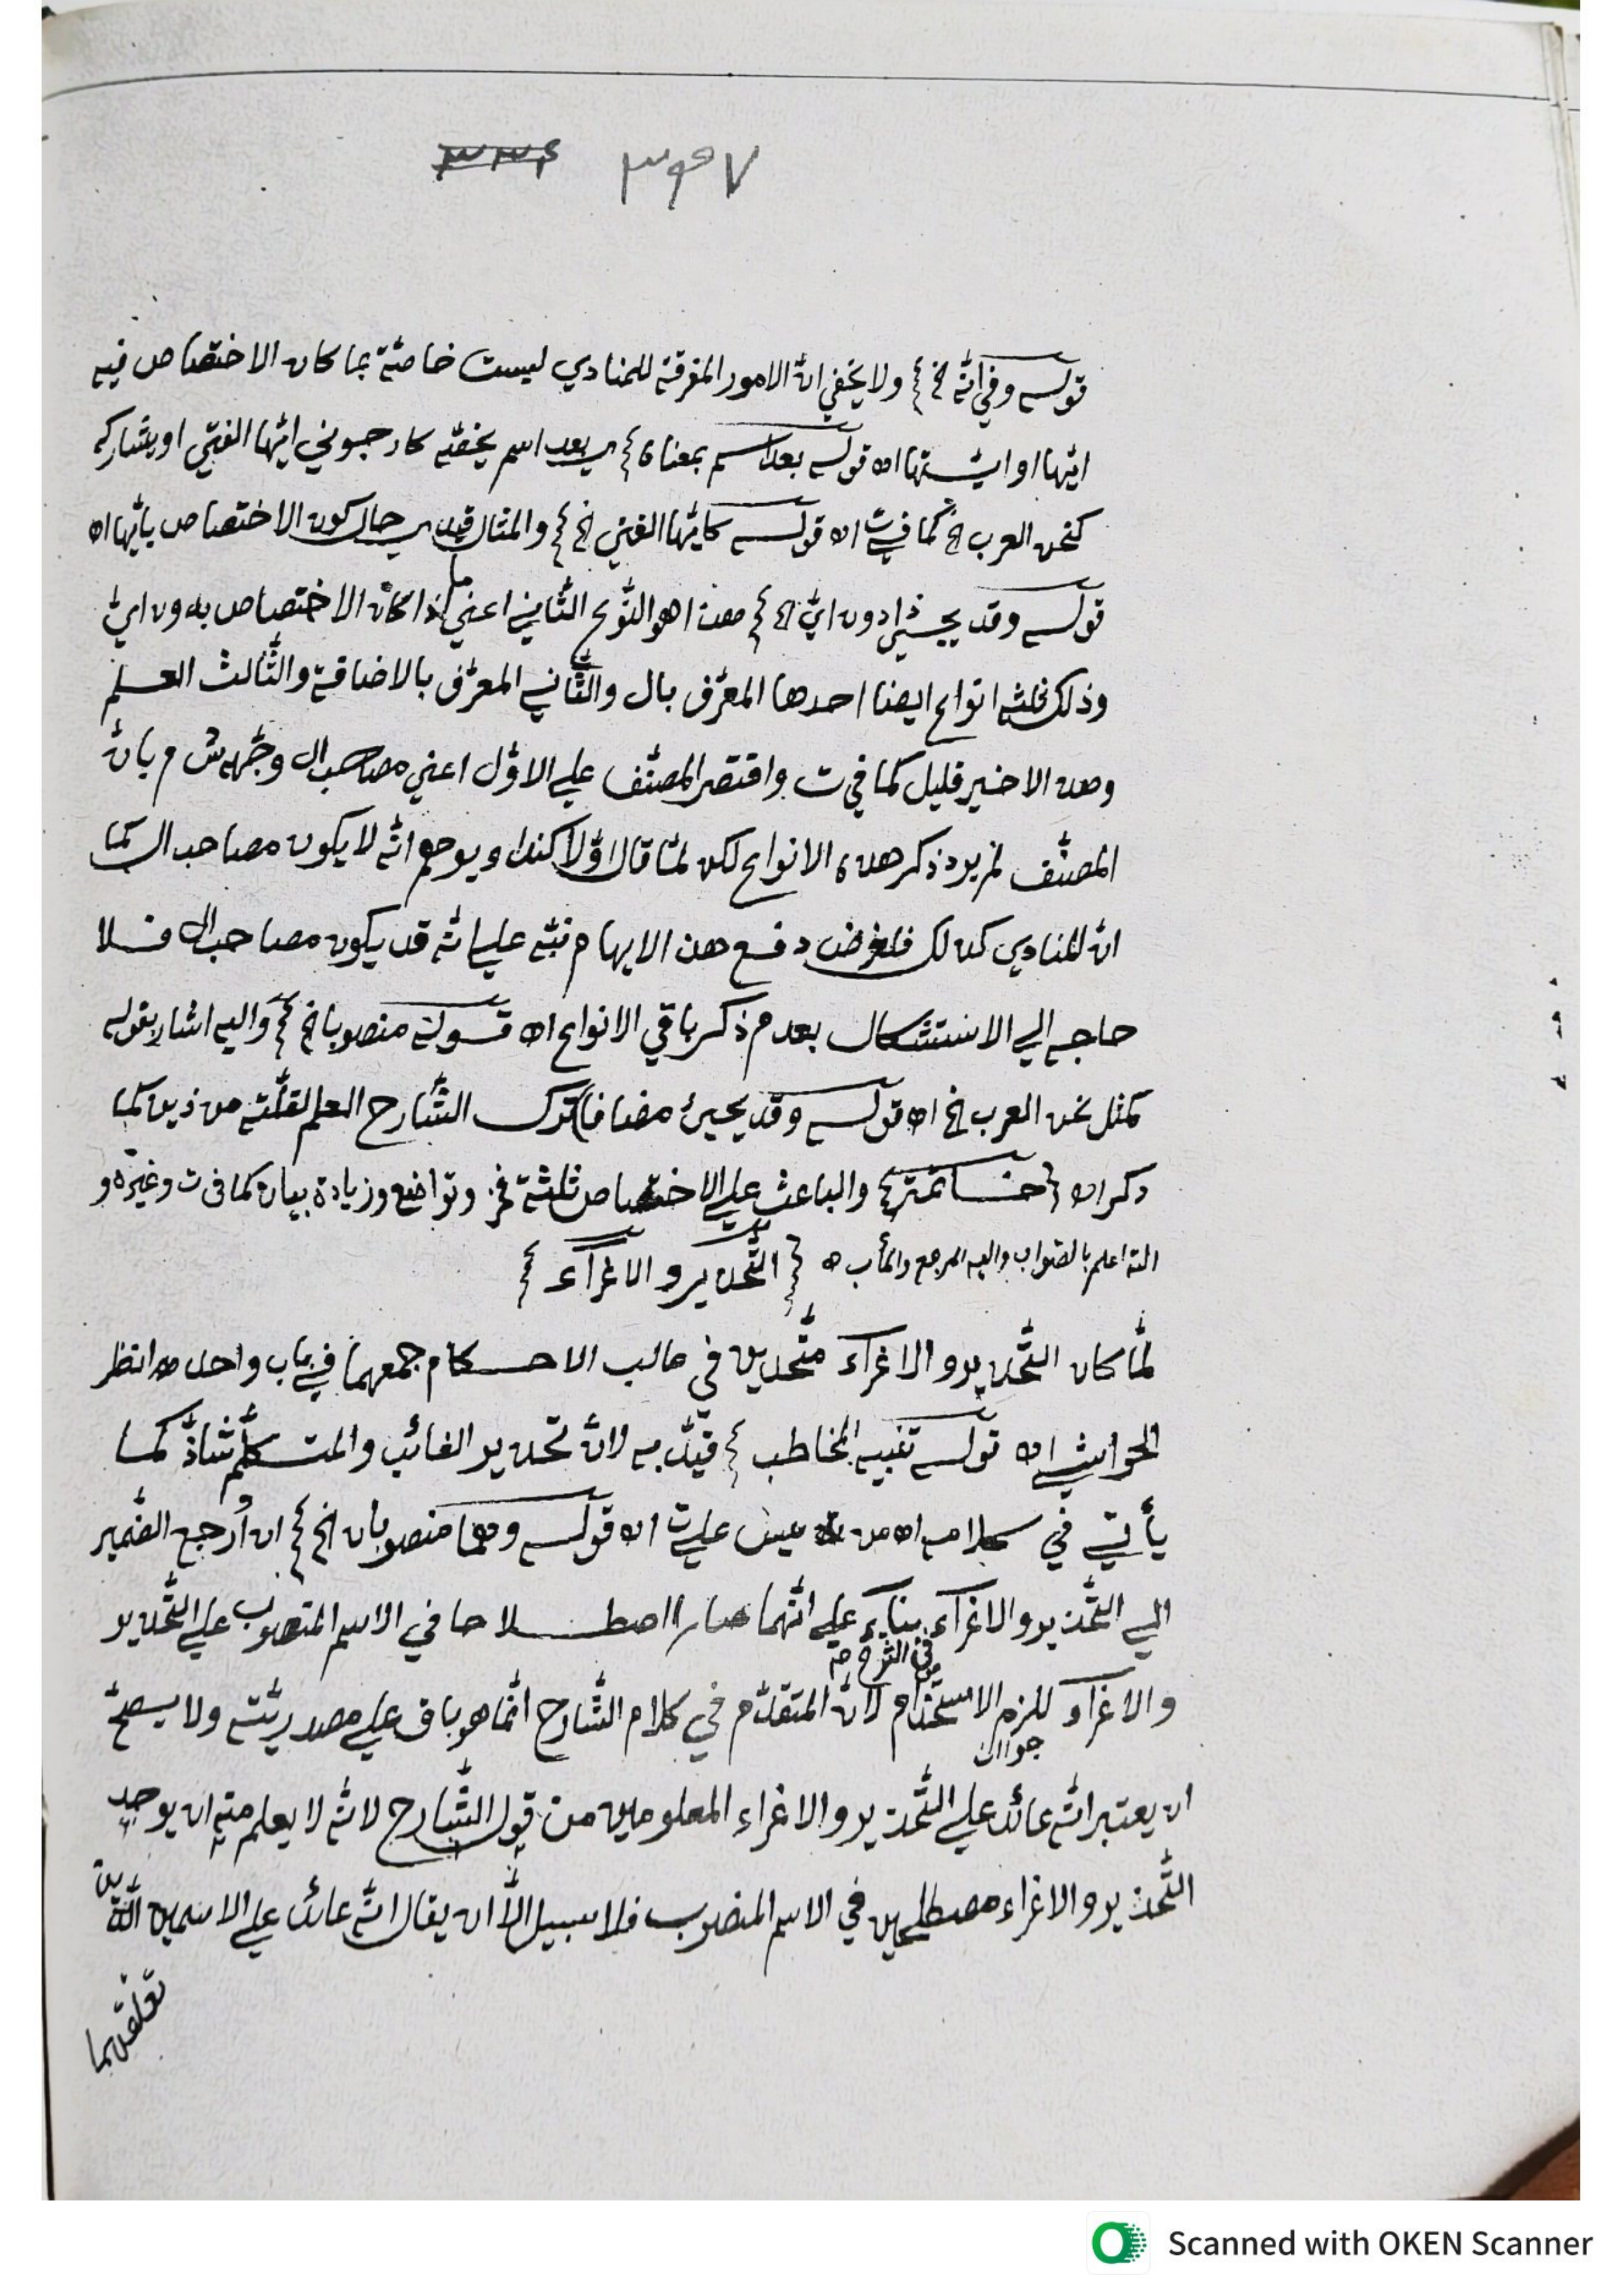 ٣٩٧ ٣٣٤
قوله وفي انّه الخ ولا يخفي انّ الامور المفرقة للمنادي ليست خاصّة بما كان الاختصاص فيه
ايّها او ايّتها اه قوله بعد اسم بمعناه اي بعد اسم يخصّه كارجبوني ايّها الفتي او يشاركه
كنحن العرب الخ كما في ت اه قوله كايّها الفتي الخ والمثال قيد اي حال كون الاختصاص بايّها اه
قوله وقد يجيئ ذا دون ايّ الخ هذا هو النّوع الثّاني اعني ما اذا كان الاختصاص بدون ايّ
وذلك ثلثة انواع ايضا احدها المعرّف بال والثّاني المعرّف بالاضافة والثّالث العلم
وهذ الاخير قليل كما في ت واقتصر المصنّف علي الاوّل اعني مصاحب ال وجّهه ش م بانّ
المصنّف لم يرد ذكر هذه الانواع لكن لمّا قال اوّلا كنداء ويوهم انّه لا يكون مصاحب ال كما
انّ المنادي كذلك فلغرض دفع هذ الايهام نبّه علي انّه قد يكون مصاحب ال فلا
حاجه الي الاستشكال بعدم ذكر باقي الانواع اه قوله منصوبا الخ واليه اشار بقوله
كمثل نحن العرب الخ اه قوله وقد يجيئ مضافا ترك الشّارح العلم لقلّته من ذين كما
ذكر اه خاتمة والباعث علي الاختصاص ثلثة فخر وتواضع وزيادة بيان كما في ت وغيره و
الله اعلم بالصّواب واليه المرجع والمأب ه التّحذير والاغرآء
لمّا كان التّحذير والاغرآء متّحدين في غالب الاحكام جمعهما في باب واحد اه انظر
الحواشي اه قوله تنبيه المخاطب قيّد به لانّ تحذير الغائب والمتكلّم شاذّ كما
يأتي في كلامه اه من عيش علي ت اه قوله وهما منصوبان الخ ان اُرجع الضّمير
الي التّحذير والاغرآء بنآء علي انّهما صارا اصطلاحا في الاسم المنصوب علي التّحذير
والاغرآء للزم الاستخدام لانّ المتقدّم في كلام الشّارح انّما هو باق علي مصدريّته ولا يصحّ
ان يعتبر انّه عائد علي التّحذير والاغراء المعلومين من قول الشّارح لانّه لا يعلم منه ان يوجد
التّحذير والاغراء مصطلحين في الاسم المنصوب فلا سبيل الّا ان يقال انّه عائد علي الاسمين الّذين
تعلّق بهما
Scanned with OKEN Scanner